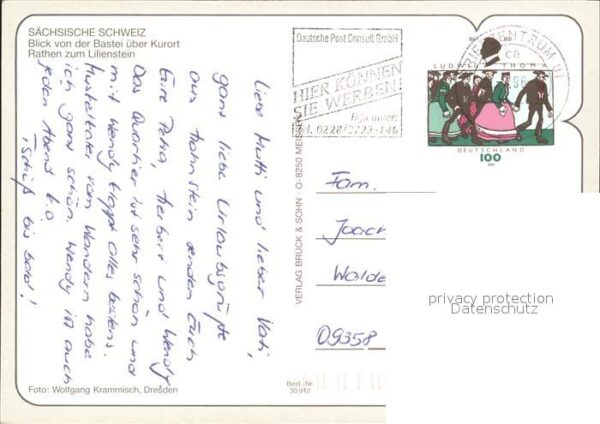 SÄCHSISCHE SCHWEIZ
Blick von der Bastei über Kurort
Rathen zum Lilienstein
Liebe Mutti und lieber Vati,
ganz liebe Urlaubsgrüße
aus Hohnstein senden Euch
Eure Petra, Herbert und Wendy.
Das Quartier ist sehr schön und
mit Wendy klappt alles bestens.
Muskelkater vom Wandern habe
ich ganz schön. Wendy ist auch
jeden Abend k.o.
Tschüß bis bald!
Foto: Wolfgang Krammisch, Dresden
Best.-Nr.
30 912
VERLAG BRÜCK & SOHN · O-8250 MEISSEN
Deutsche Post Consult GmbH
HIER KÖNNEN
SIE WERBEN!
Info unter:
Tel. 0228/
BRIEFZENTRUM
LUDWIG THOMA
DEUTSCHLAND
100
Fam.
Joach
Walde
09358
privacy protection
Datenschutz